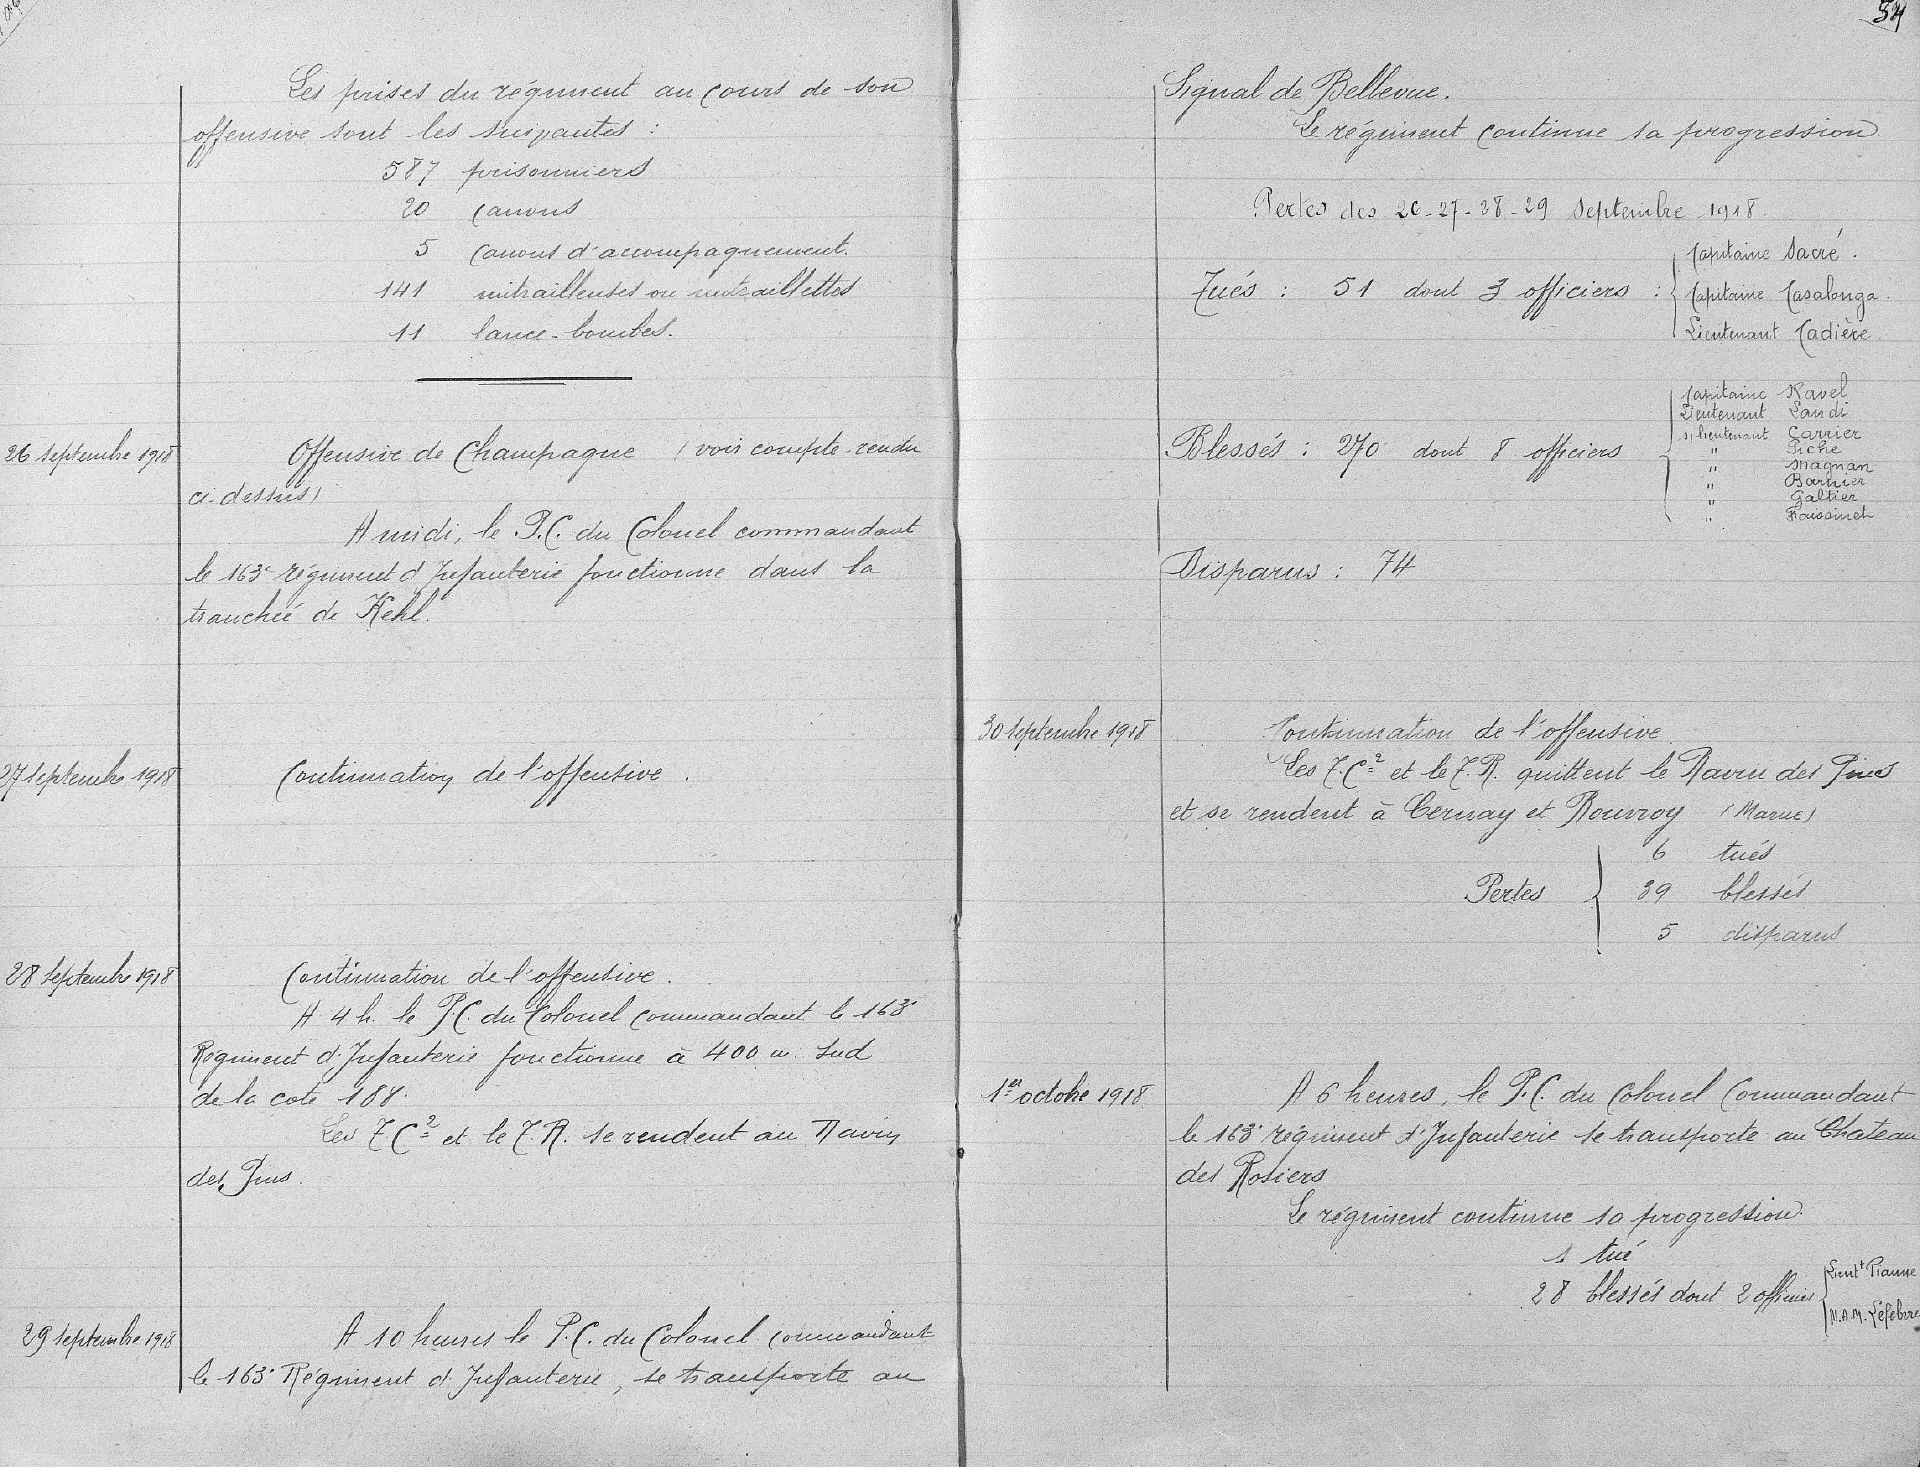 Les prises du régiment au cours de son
offensive sont les suivantes :
587 prisonniers
20 canons
5 canons d'accompagnement.
141 mitrailleuses ou mitraillettes
11 lance-bombes.
26 septembre 1918
Offensive de Champagne (voir compte-rendu
ci-dessus)
A midi, le P.C. du Colonel commandant
le 163e régiment d'Infanterie fonctionne dans la
tranchée de Kehl.
27 septembre 1918
Continuation de l'offensive.
28 septembre 1918
Continuation de l'offensive.
A 4 h. le P.C. du Colonel commandant le 163e
Régiment d'Infanterie fonctionne à 400 m. Sud
de la cote 188.
Les T.C2 et le T.R. se rendent au Ravin
des Pins.
29 septembre 1918
A 10 heures le P.C. du Colonel commandant
le 163e Régiment d'Infanterie, se transporte au
54
Signal de Bellevue.
Le régiment continue sa progression
Pertes des 26-27-28-29 Septembre 1918.
Tués : 51 dont 3 officiers :
Capitaine Sacré.
Capitaine Casalonga.
Lieutenant Cadière.
Blessés : 270 dont 8 officiers
Capitaine Ravel
Lieutenant Landi
s/lieutenant Carrier
" Piche
" Magnan
" Barnier
" Galtier
" Faissinet
Disparus : 74
30 septembre 1918
Continuation de l'offensive.
Les T.C2 et le T.R. quittent le Ravin des Pins
et se rendent à Cernay et Rouvroy (Marne)
Pertes
6 tués
39 blessés
5 disparus
1er octobre 1918
A 6 heures, le P.C. du Colonel Commandant
le 163e régiment d'Infanterie se transporte au Chateau
des Rosiers
Le régiment continue sa progression.
1 tué
28 blessés dont 2 officiers
Lieutt Pianne
M.A.M. Lefebvre